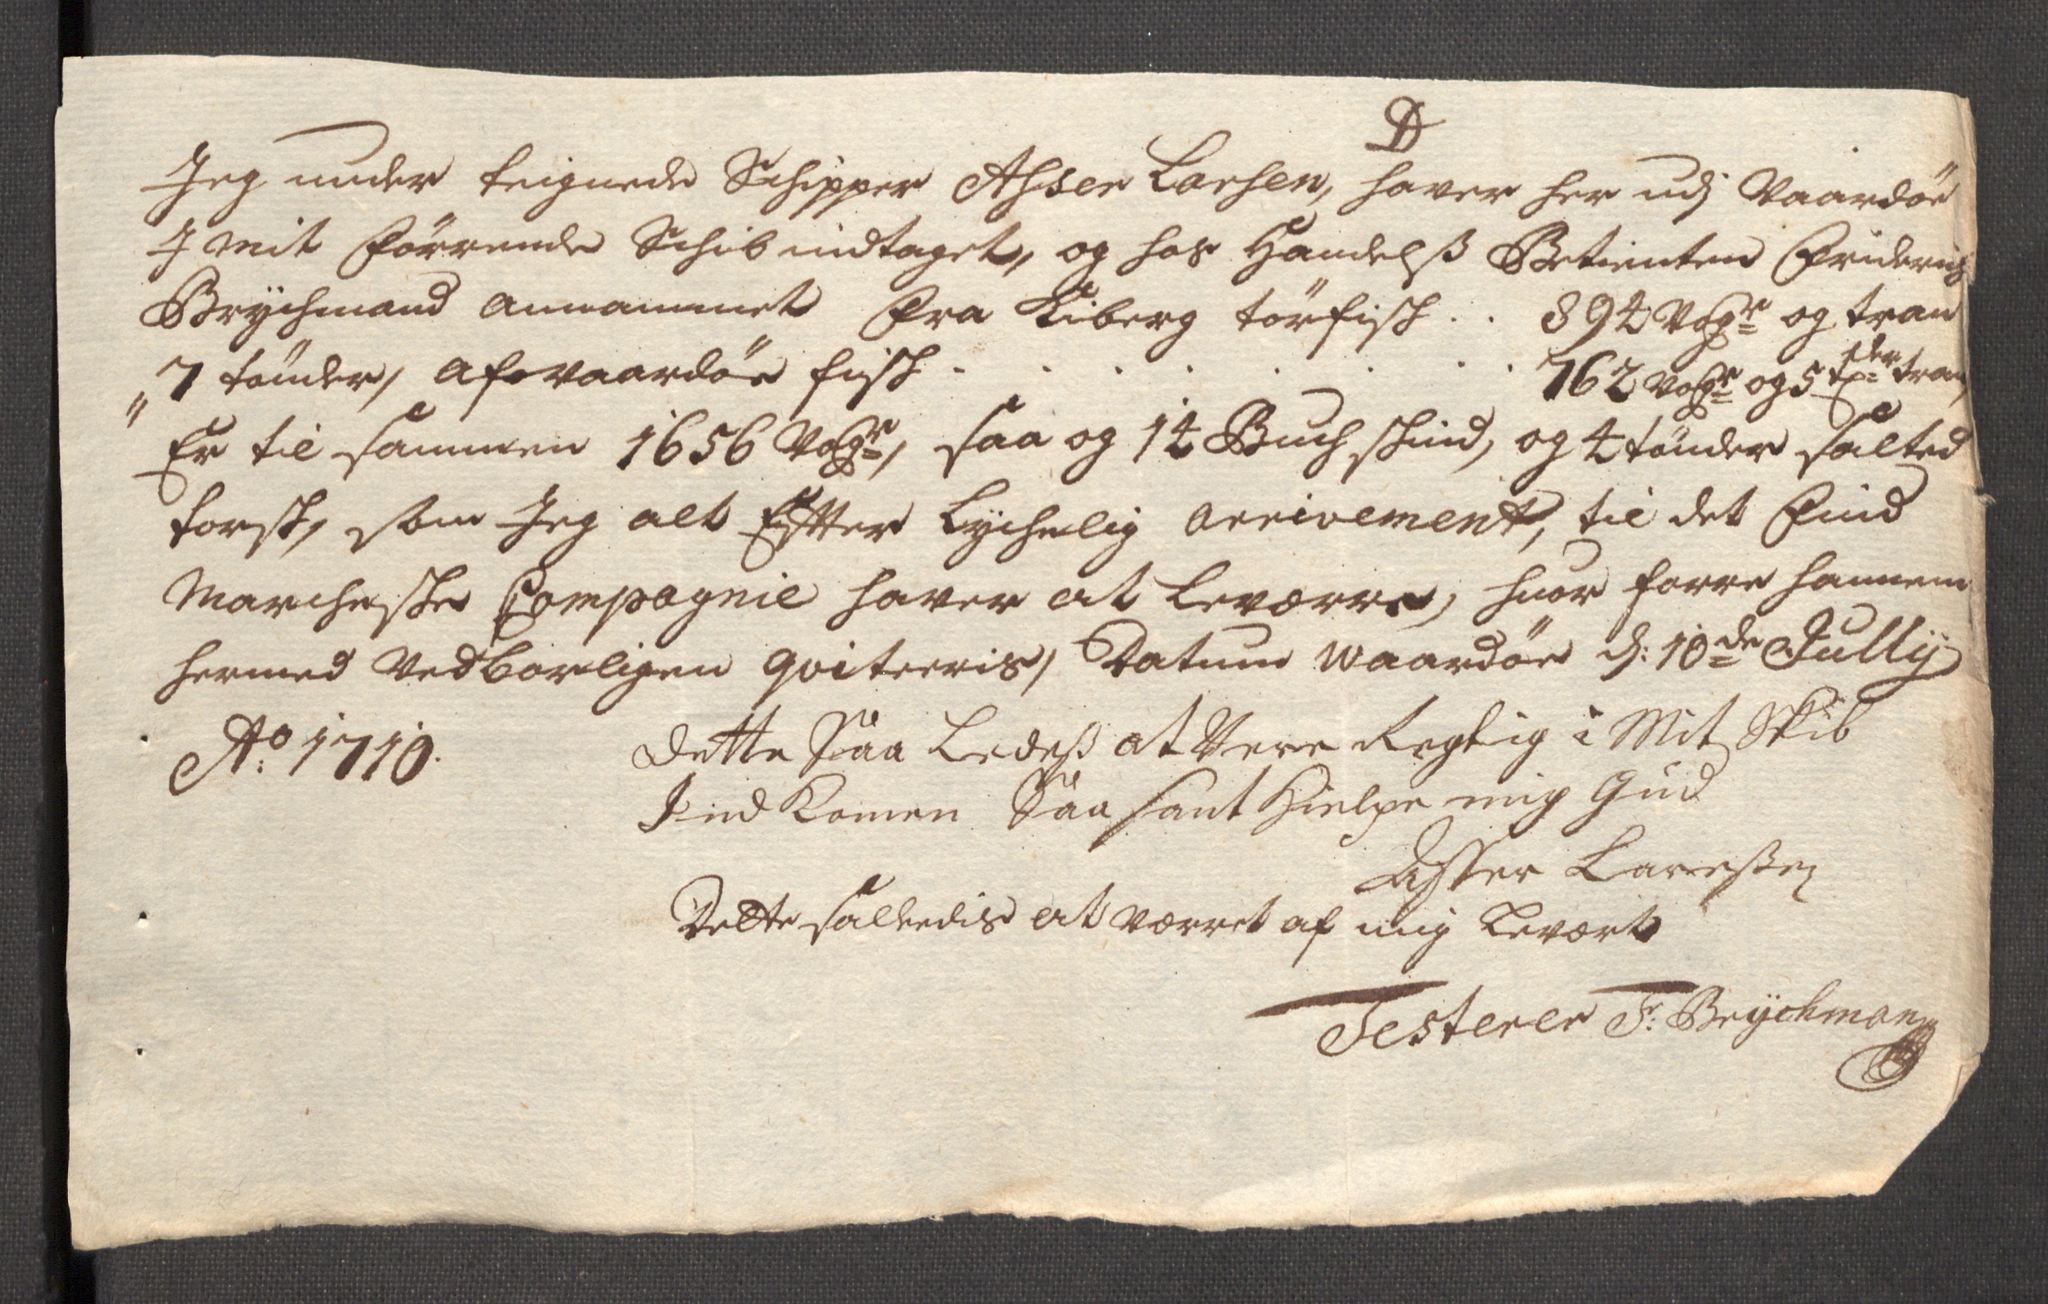 D
Jeg under teignede Schipper Ahser Larsen, haver her udj Vaardöe
J mit förrende Schib indtaget, og hos Handelß Betienten Friderich
Brÿchmand annammet fra Kiberg törfisch . . 894 Voger og tran
7 tönder, af vaardöe fisch . . . . . . . 762 Voger og 5 tder tran,
Er til sammen 1656 Voger, saa og 14 Buch schind, og 4 tönder salted
torsk, som Jeg alt Effter Lychelig arrivement, til det Find
Marchesche Compagnie haver at Leværre, huor forre hannem
hermed Vedborligen qviteeris, Datum Waardöe d: 10de Jullÿ
Ao: 1710.
Dette Saa Ledeß at Vere Regtig i Mit Skib
Ind Komen Saa sant Hielpe mig Gud
Asser Larreßen
Dette saaleedis at værret af mig Levært
Testerer Fr: Brÿchman